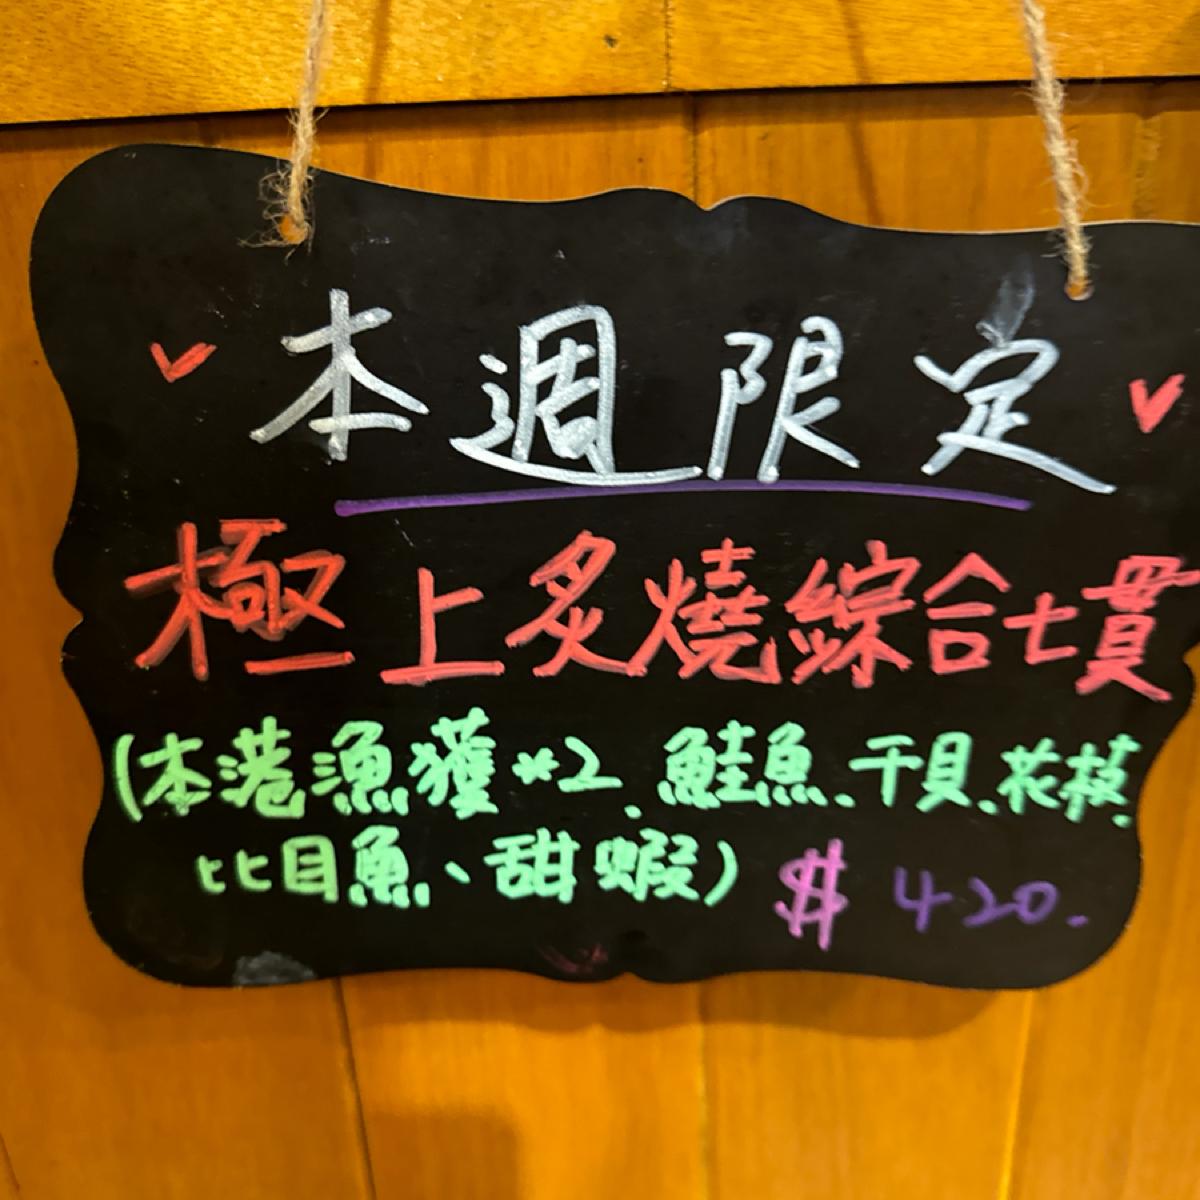 本週限定
極上炙燒綜合七貫
(本港漁獲*2、鮭魚、干貝、花枝、
比目魚、甜蝦) $420.